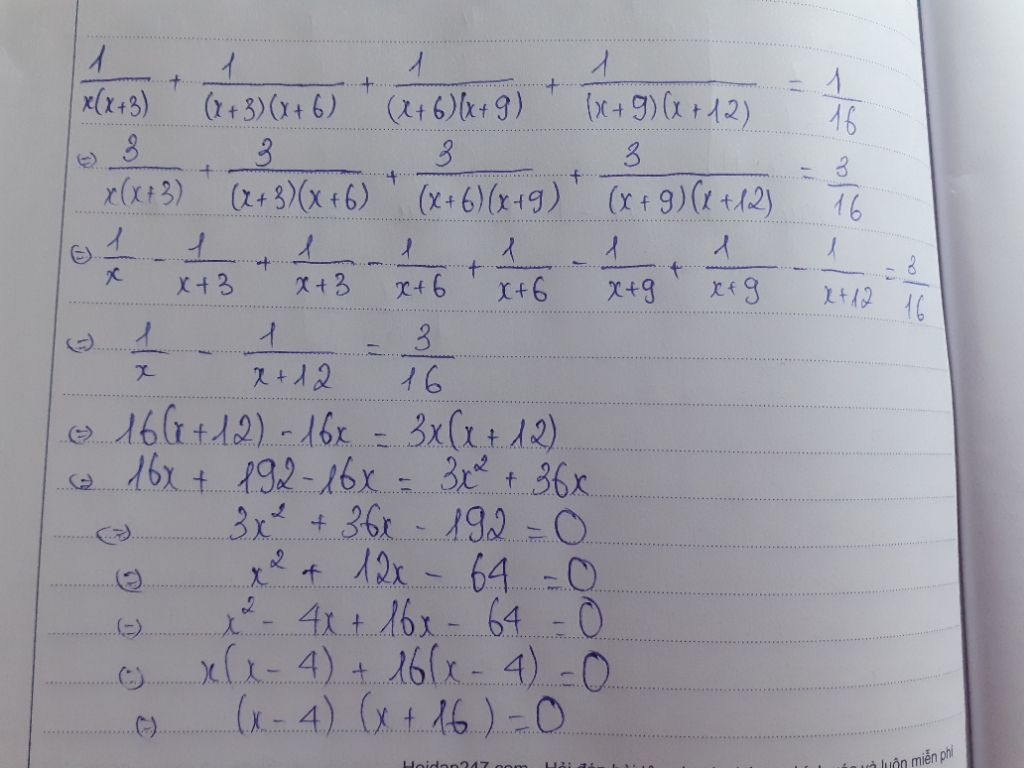 1/x(x+3) + 1/(x+3)(x+6) + 1/(x+6)(x+9) + 1/(x+9)(x+12) = 1/16
(=) 3/x(x+3) + 3/(x+3)(x+6) + 3/(x+6)(x+9) + 3/(x+9)(x+12) = 3/16
(=) 1/x - 1/x+3 + 1/x+3 - 1/x+6 + 1/x+6 - 1/x+9 + 1/x+9 - 1/x+12 = 3/16
(=) 1/x - 1/x+12 = 3/16
(=) 16(x+12) - 16x = 3x(x+12)
(=) 16x + 192 - 16x = 3x² + 36x
(=) 3x² + 36x - 192 = 0
(=) x² + 12x - 64 = 0
(=) x² - 4x + 16x - 64 = 0
(=) x(x - 4) + 16(x - 4) = 0
(=) (x - 4) (x + 16) = 0
Hoidap247.com và luôn miễn phí